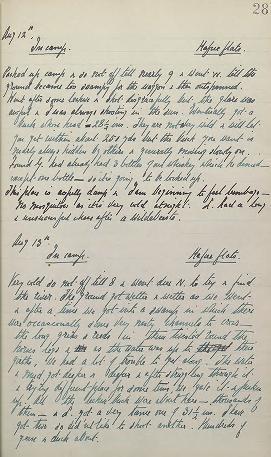 28
Aug 12th
In camp. Kafue flats.
Packed up camp & so not off till nearly 9 & went N. till the
ground became too swampy for the wagon & then outspanned.
Went after some lechwe & shot disgracefully but the glare was
awful & I was always shooting in the sun. Eventually got a
buck whose head = 28½ ins. They are not very wild & will let
you get within about 200 yds but the buck you want is
nearly always hidden by others & generally moving slowly on.
found had already had 3 bottles good whiskey which he denied
except one bottle – so it's going to be locked up.
This place is awfully damp & I am beginning to feel
No mosquitos as it is very cold at night. I had a long
& unsuccessful chase after a wildebeeste.
Aug 13th
In camp. Kafue flats.
Very cold so not off till 8 & went due N. to try & find
the river. The ground got wetter & wetter as we went
& after a time we got into a swamp in which there
were occasionally some very nasty channels to cross –
the long grass & reeds in them twisted round the
horses legs & as the water was up to their
, we had a lot of trouble to get along. The water
& mud got deeper & deeper & after struggling through it
& trying different places for some time, we gave it up
up. All the lechwe buck were about here – thousands of
them – & I got a very name one of 31½ ins. I have
got two so did not like to shoot another. Hundreds of
geese & duck about.